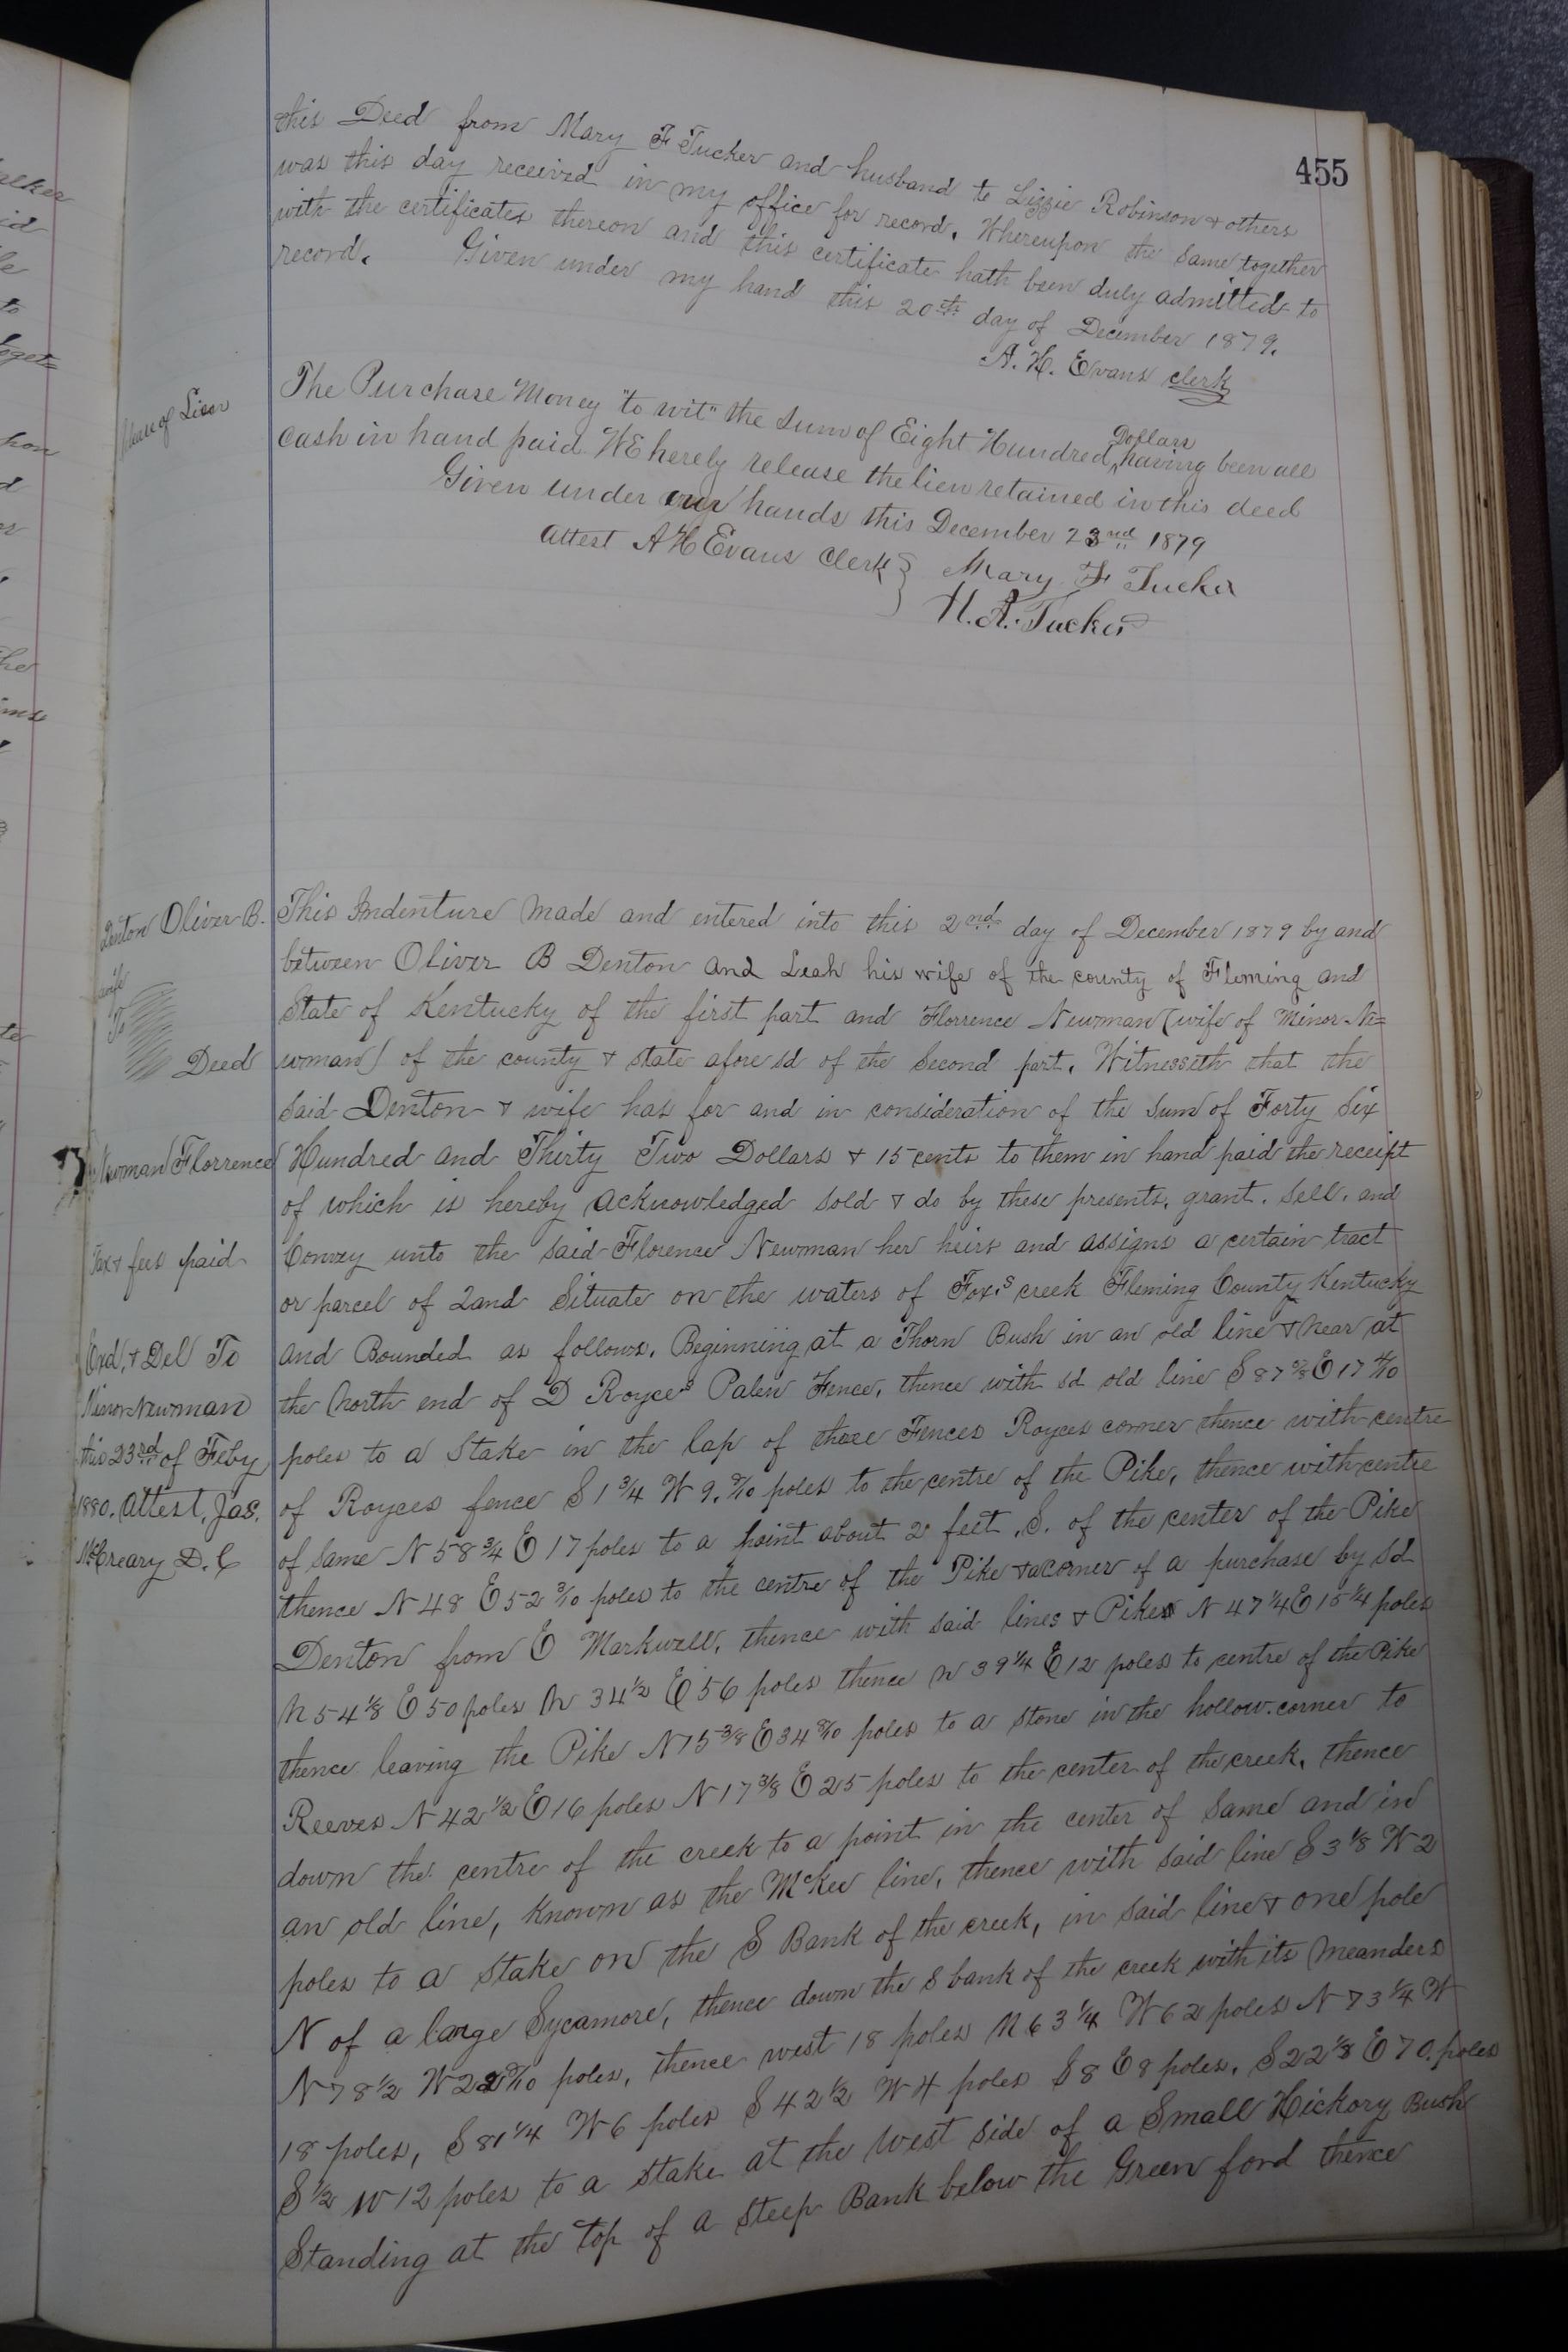 455
this Deed from Mary F Tucker and husband to Lizzie Robinson & others
was this day received in my office for record. Whereupon the same together
with the certificates thereon and this certificate hath been duly admitted to
record. Given under my hand this 20th day of December 1879.
A. H. Evans clerk
of Lien
The Purchase Money "to wit" the Sum of Eight Hundred Dollars having been all
Cash in hand paid. WE hereby release the lien retained in this deed
Given under our hands this December 23nd 1879
Attest A H Evans Clerk } Mary F Tucker
H. A. Tucker
Denton Oliver B.
wife
To
Deed
Newman Florrence
Tax & fees paid
Exd, & Del To
Minor Newman
this 23rd of Feby
1880. Attest, Jas.
McCreary D. C
This Indenture Made and entered into this 2nd day of December 1879 by and
between Oliver B Denton and Leah his wife of the county of Fleming and
State of Kentucky of the first part and Florrence Newman (wife of Minor Ne=
wman) of the county & state afore sd of the Second part. Witnesseth that the
Said Denton & wife has for and in consideration of the Sum of Forty Six
Hundred and Thirty Two Dollars & 15 cents to them in hand paid the receipt
of which is hereby acknowledged sold & do by these presents, grant. Sell. and
Convey unto the said Florence Newman her heirs and assigns a certain tract
or parcel of Land Situate on the waters of Fox,s creek Fleming County Kentucky
and Bounded as follows. Beginning at a Thorn Bush in an old line & near at
the North end of D Royce's Palen Fence, thence with sd old line S 87 E 17 4/10
poles to a Stake in the lap of those Fences Royces corner thence with centre
of Royces fence S 1 3/4 W 9. poles to the centre of the Pike, thence with centre
of Same N 58 3/4 E 17 poles to a point about 2 feet S. of the center of the Pike
thence N 48 E 52 poles to the centre of the Pike & a corner of a purchase by sd
Denton from E Markwell, thence with said lines & Pike N 47 1/4 E 15 1/4 poles
N 54 1/8 E 50 poles N 34 1/2 E 56 poles thence N 39 1/4 E 12 poles to centre of the Pike
thence leaving the Pike N 15 3/8 E 34 poles to a stone in the hollow. corner to
Reeves N 42 1/2 E 16 poles N 17 3/8 E 25 poles to the center of the creek, thence
down the centre of the creek to a point in the center of Same and in
an old line, known as the McKee line, thence with said line S 3 1/8 W 2
poles to a stake on the S Bank of the creek, in said line & one pole
N of a large Sycamore, thence down the S bank of the creek with its meanders
N 78 1/2 W poles, thence west 18 poles N 63 1/4 W 62 poles N 73 1/4 W
18 poles, S 81 1/4 W 6 poles S 42 1/2 W 4 poles S 8 E 8 poles. S 22 1/8 E 70. poles
S 1/2 W 12 poles to a stake at the West side of a Small Hickory Bush
Standing at the top of a steep Bank below the Green ford thence